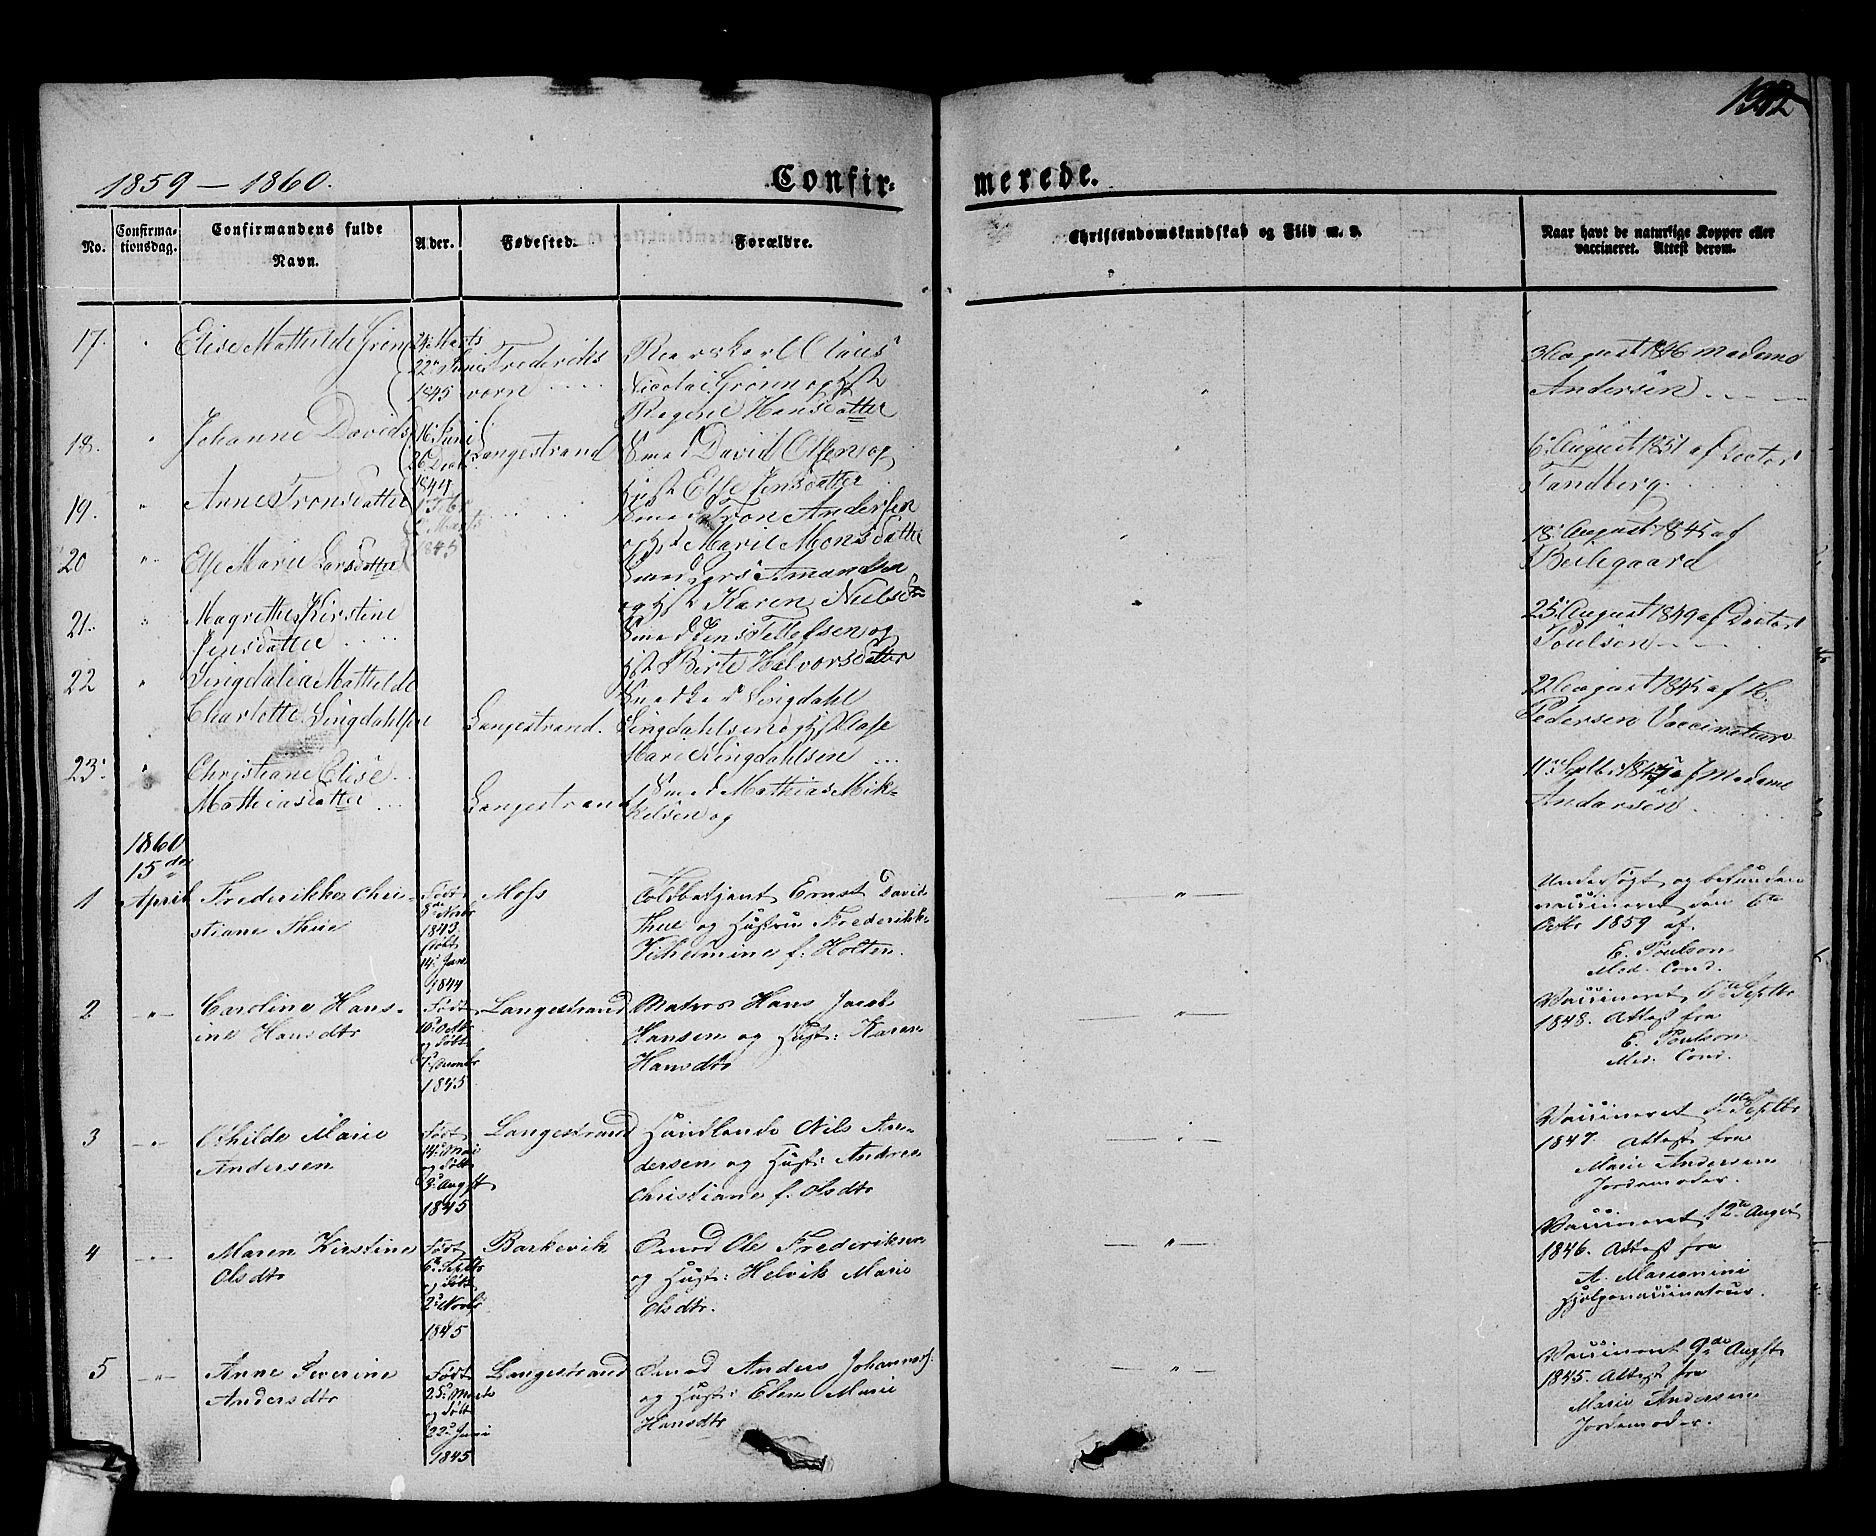 192
1859 – 1860.
Confir-
merede.
No.
Confirma-
tionsdag.
Confirmandens fulde
Navn.
Alder.
Fødested.
Forældre.
Christendomskundskab og Flid m. v.
Naar havt de naturlige Kopper eller
vaccineret. Attest derom.
17.
Elise Mathilde Grøn
24 Marts
22
1845
Frederiks
værn
Claus
Nicolai Grønn og Hst
Regine Hansdatter
August 1846 Madame
Andersen
18.
Johanne Davids
16 Juni
26 Decb
1844
Langestrand
Smed David Olsen og
Hst Else Jensdatter
6 August 1851 af Doctor
Tandberg
19.
Anne Tronsdatter
1 Feb
Marts
1845
Smed Tron Andersen
og Hst Marie Monsdatter
18 August 1845 af
Beilegaard
20
Else Marie Larsdatter
Smed Lars Amundsen
og Hst Karen Nielsd
21.
Magrethe Kirstine
Jensdatter
Smed Jens Tellefsen og
Hst Birte Halvorsdatter
25 August 1849 af Doctor
Poulson
22
Lingdalia Mathilde
Charlotte Lingdahlsen
Langestrand.
Lingdahl
Lingdahlsen og Hst Else
Marie Lingdahlsen
22 August 1845 af H.
Pedersen Vaccinateur
23
Christiane Elise
Mathiasdatter
Langestrand
Smed Mathias Mik-
kelsen og
11 Septb 1847 af Madame
Andersen
1860
15de
1
April
Frederikke Chri-
stiane Thue
Født
5 Novbr
1843
døbt
14 Jan
1844
Moss
Toldbetjent Ernst David
Thue og Hustru Frederikk
Vilhelmine f. Holten.
Undersøgt og befunden
vaccineret den 6te
Octbr 1859 af.
E. Poulson
Med. Cand.
2
Caroline Hans-
ine Hansdtr
Født
10 Octbr
og døbt
7 Decembr
1845
Langestrand
Matros Hans Jacob
Hansen og Hust: Karen
Hansdtr
Vaccineret 6te Septbr
1848. Attest fra
E. Poulson
Med. Cand.
3
Othilde Marie
Andersen
Født
14 Mai
og døbt
3 Augst
1845
Langestrand
Handlende Nils An-
dersen og Hust: Andrea
Christiane f. Olsdtr
Vaccineret 1ste Septbr
1847. Attest fra
Marie Andersen
Jordemoder.
4
Maren Kirstine
Olsdtr
Født
6 Septbr
og døbt
2 Novbr
1845
Barkevik
Smed Ole Frederiksen
og Hust: Helvik Marie
Olsdtr.
Vaccineret 12te Augst
1846. Attest fra
A. Marionini
Hjelpevaccinateur.
5
Anne Severine
Andersdtr
Født
25 Marts
og døbt
22 Juni
1845
Langestrand
Smed Anders Johannes.
og Hust: Elen Marie
Hansdtr
Vaccineret 9de Augst
1845. Attest fra
Marie Andersen
Jordemoder.